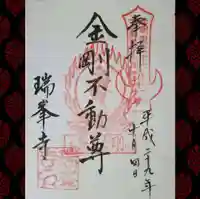 奉拝
平成二十九年
十月四日
金剛不動尊
瑞峯寺